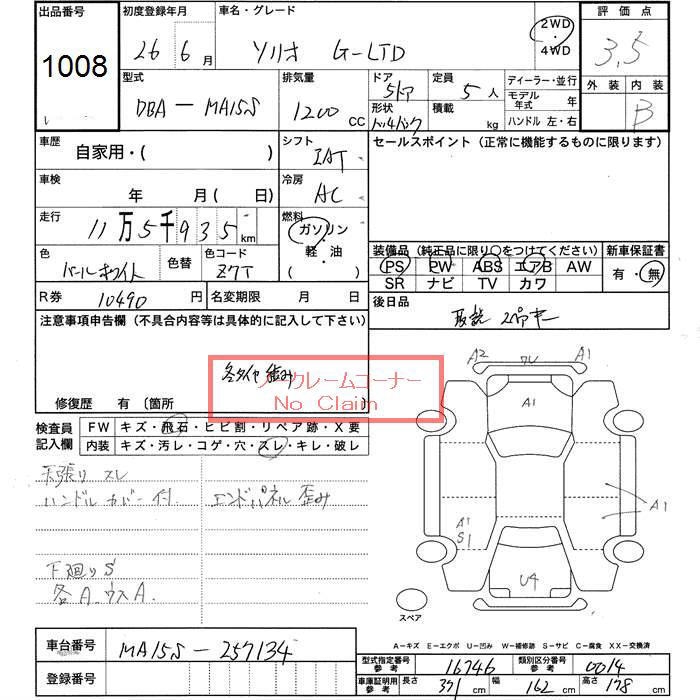 出品番号 初度登録年月 車名・グレード 2WD ・ 4WD 評価点
1008 26年6月 ソリオ G-LTD 3,5
型式 排気量 ドア 定員 ディーラー・並行 外装 内装
DBA-MA15S 1200 CC 5ドア 5人 モデル年式 年 B
形状 積載 kg ハンドル 左・右
車歴 自家用・( ) シフト IAT セールスポイント (正常に機能するものに限ります)
車検 年 月 ( 日) 冷房 AC
走行 11万5千935km 燃料 ガソリン ・ 軽・油 ( )
色 パールホワイト 色替 色コード Z7T
装備品 (純正品に限り○をつけてください) 新車保証書
PS PW ABS エアB AW 有・無
SR ナビ TV カワ
R券 10490円 名変期限 月 日 後日品 取説 スペアキー
注意事項申告欄 (不具合内容等は具体的に記入して下さい)
各タイヤ
ノークレームコーナー
No Claim
修復歴 有 〔箇所
検査員記入欄 FW キズ・飛石・ヒビ割・リペア跡・X要
内装 キズ・汚レ・コゲ・穴・スレ・キレ・破レ
天張り スレ
ハンドルカバー付. エンドパネル歪み
下廻りS
各A.ウスA.
A2 ワレ A1
A1
A1
A1
S1
U4
スペア
A-キズ E-エクボ U-凹み W-補修跡 S-サビ C-腐食 XX-交換済
車台番号 MA15S-257134
登録番号
型式指定番号参考 16746 類別区分番号参考 0014
車庫証明用参考 長さ 371cm 幅 162cm 高さ 178cm